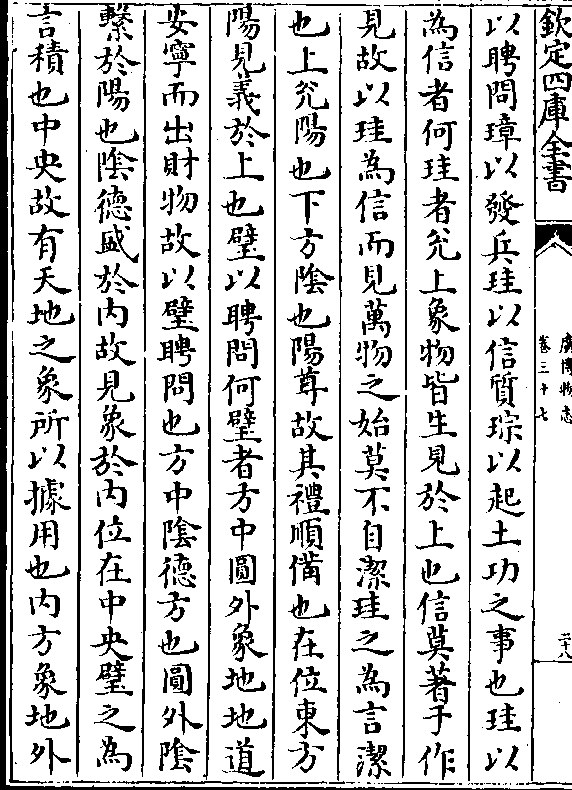 欽定四庫全書
廣博物志
卷三十七
二十八
以聘問璋以發兵珪以信質琮以起土功之事也珪以
為信者何珪者兊上象物皆生見於上也信莫著于作
見故以珪為信而見萬物之始莫不自潔珪之為言潔
也上兊陽也下方陰也陽尊故其禮順備也在位東方
陽見義於上也璧以聘問何璧者方中圓外象地地道
安寧而出財物故以璧聘問也方中陰德方也圓外陰
繫於陽也陰德盛於內故見象於內位在中央璧之為
言積也中央故有天地之象所以據用也內方象地外